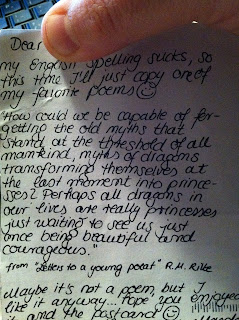 Dear
my English spelling sucks, so
this time I'll just copy one of
my favorite poems
"How could we be capable of for-
getting the old myths that
stand at the threshold of all
mankind, myths of dragons
transforming themselves at
the last moment into prince-
sses? Perhaps all dragons in
our lives are really princesses
just waiting to see us just
once being beautiful and
courageous."
from "Letters to a young poet" R.M. Rilke
Maybe it's not a poem, but I
like it anyway... Hope you enjoyed
it and the postcard